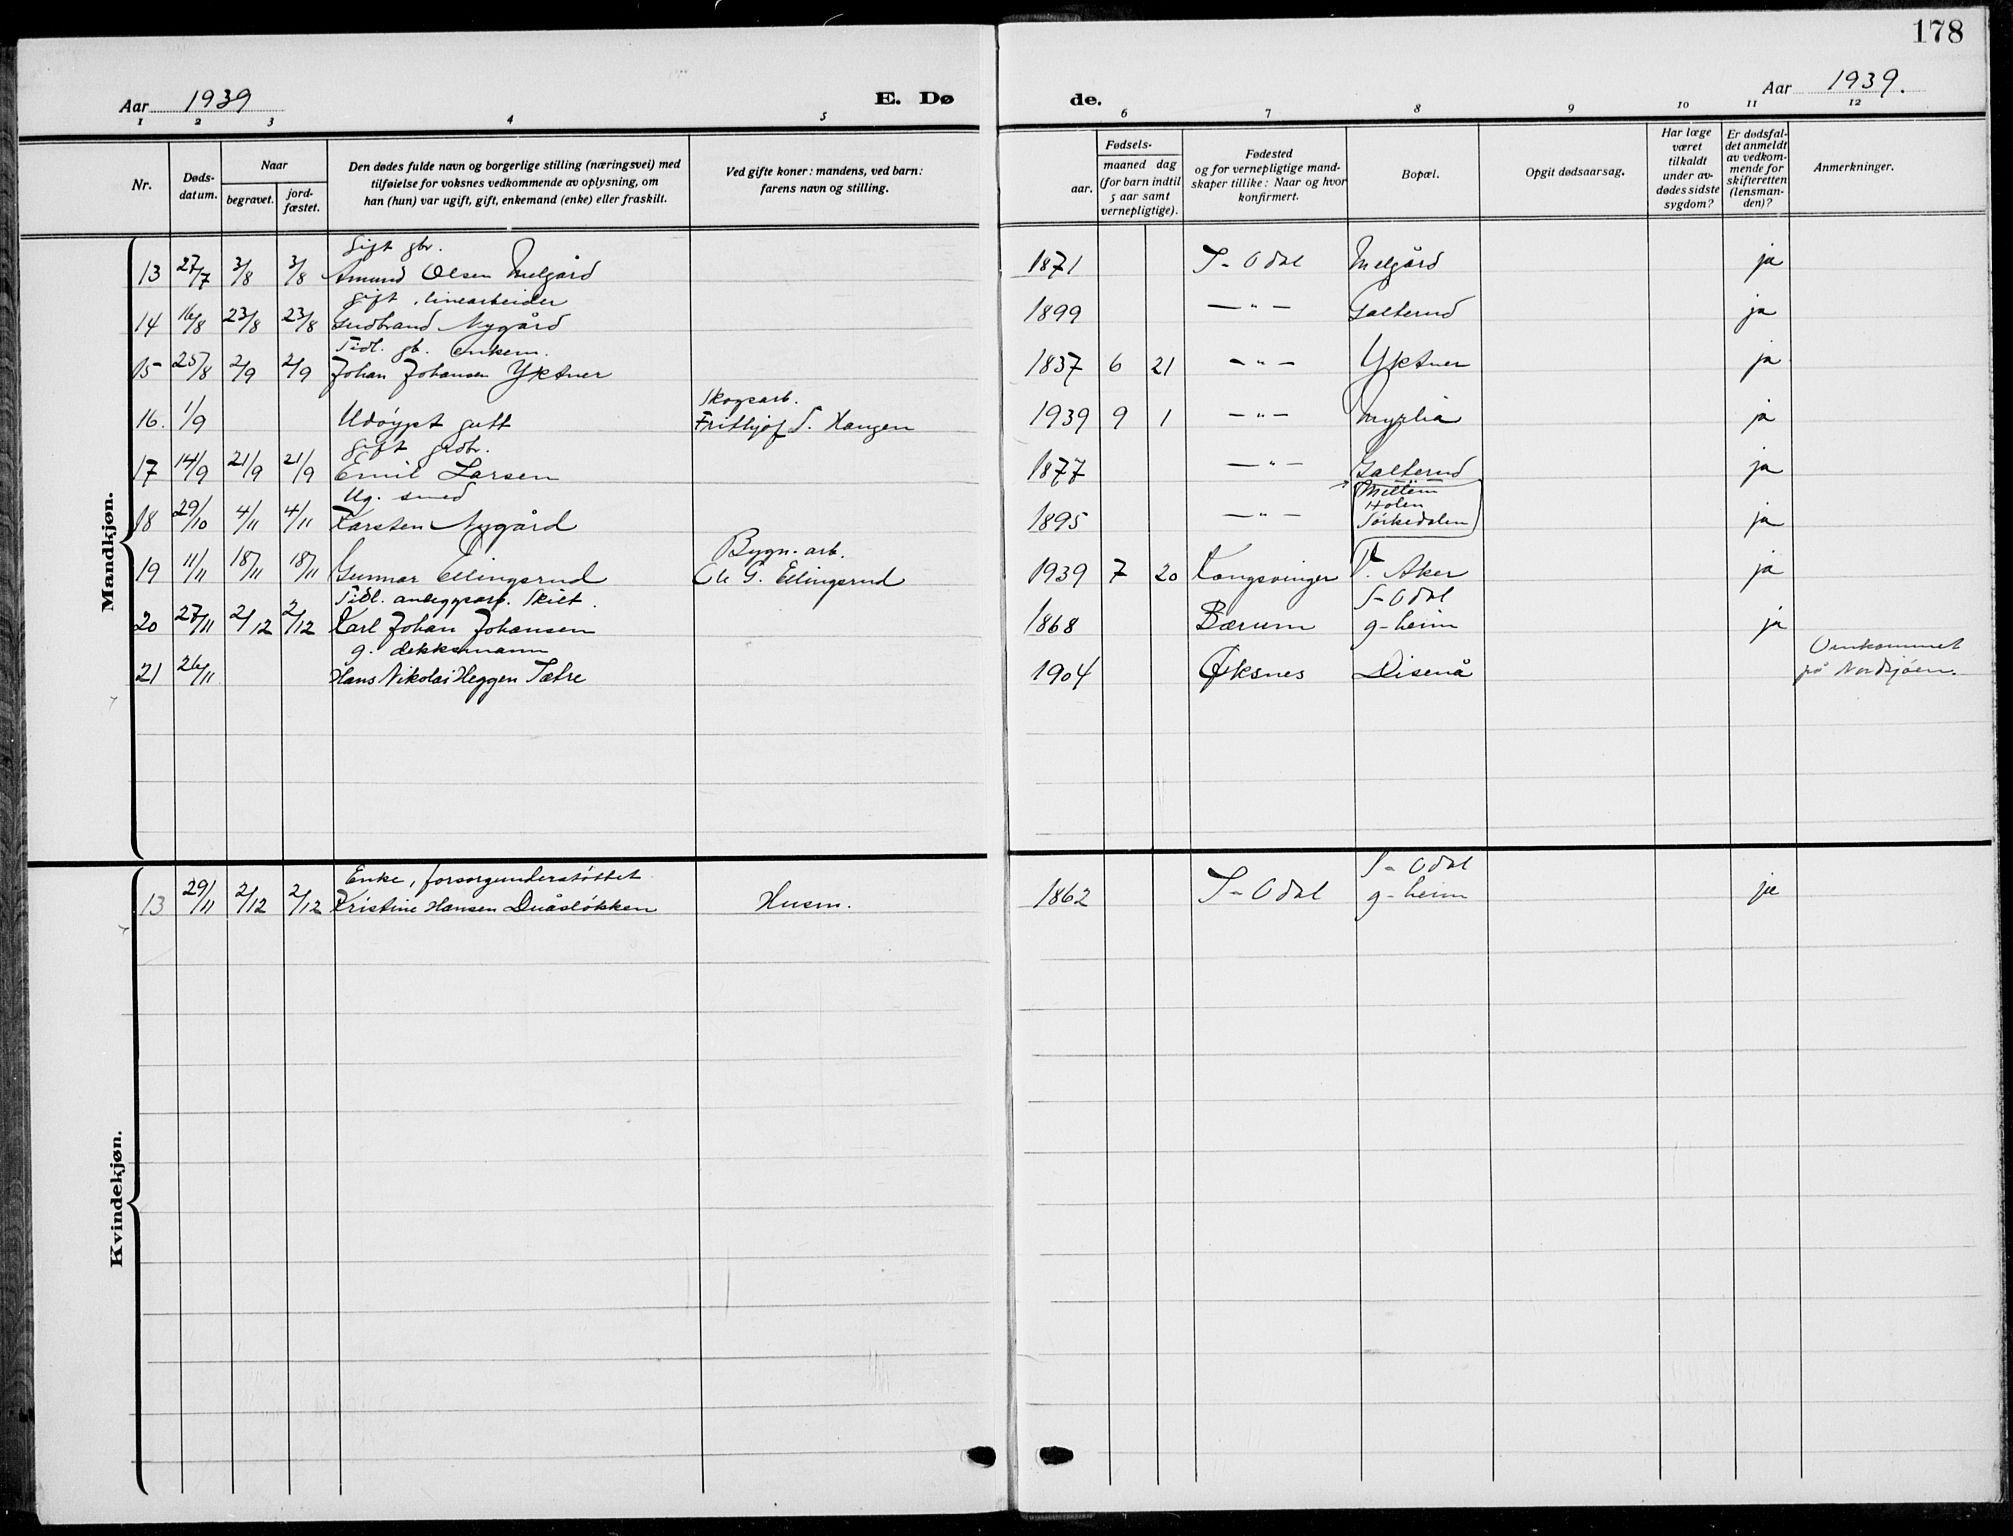 178
Aar 1939
E. Dø
de.
Aar 1939.
1 2 3 4 5 6 7 8 9 10 11 12
Nr.
Døds-
datum.
Naar
begravet.
jord-
fæstet.
Den dødes fulde navn og borgerlige stilling (næringsvei) med
tilføielse for voksnes vedkommende av oplysning, om
han (hun) var ugift, gift, enkemand (enke) eller fraskilt.
Ved gifte koner: mandens, ved barn:
farens navn og stilling.
Fødsels-
aar.
maaned dag
(for barn indtil
5 aar samt
vernepligtige).
Fødested
og for vernepligtige mand-
skaper tillike: Naar og hvor
konfirmert.
Bopæl.
Opgit dødsaarsag.
Har læge
været
tilkaldt
under av-
dødes sidste
sygdom?
Er dødsfal-
det anmeldt
av vedkom-
mende for
skifteretten
(lensman-
den)?
Anmerkninger.
Mandkjøn.
gift gbr.
13 27/7 3/8 3/8 Amund Olsen Melgård 1871 S-Odal Melgård ja
gift, linearbeider
14 16/8 23/8 23/8 Gudbrand Nygård 1899 — " — Galterud ja
Tidl. gb. enkem.
15 25/8 2/9 2/9 Johan Johansen Yktner 1837 6 21 — " — Yktner ja
Skogsarb.
16. 1/9 Udøypt gutt Frithjof S. Haugen 1939 9 1 — " — Myrlia ja
gift grdbr.
17 14/9 21/9 21/9 Emil Larsen 1877 — " — Galterud ja
Ug. smed Mellem
Holen
18 29/10 4/11 4/11 Karsten Nygård 1895 — " — Sørkedalen ja
Bygn. arb.
19 11/11 18/11 18/11 Gunnar Ellingsrud Ole G. Ellingsrud 1939 7 20 Kongsvinger V. Aker ja
Tidl. anleggsarb. Skilt. S-Odal
20 27/11 2/12 2/12 Karl Johan Johansen 1868 Bærum g-heim ja
g. dekksmann Omkommet
21 26/11 Hans Nikolai Heggen Sætre 1904 Øksnes Disenå på Nordsjøen.
Kvindekjøn.
Enke, forsorgsunderstøttet S-Odal
13 29/11 2/12 2/12 Kristine Hansen Duåsløkken Husm. 1862 S-Odal g-heim ja